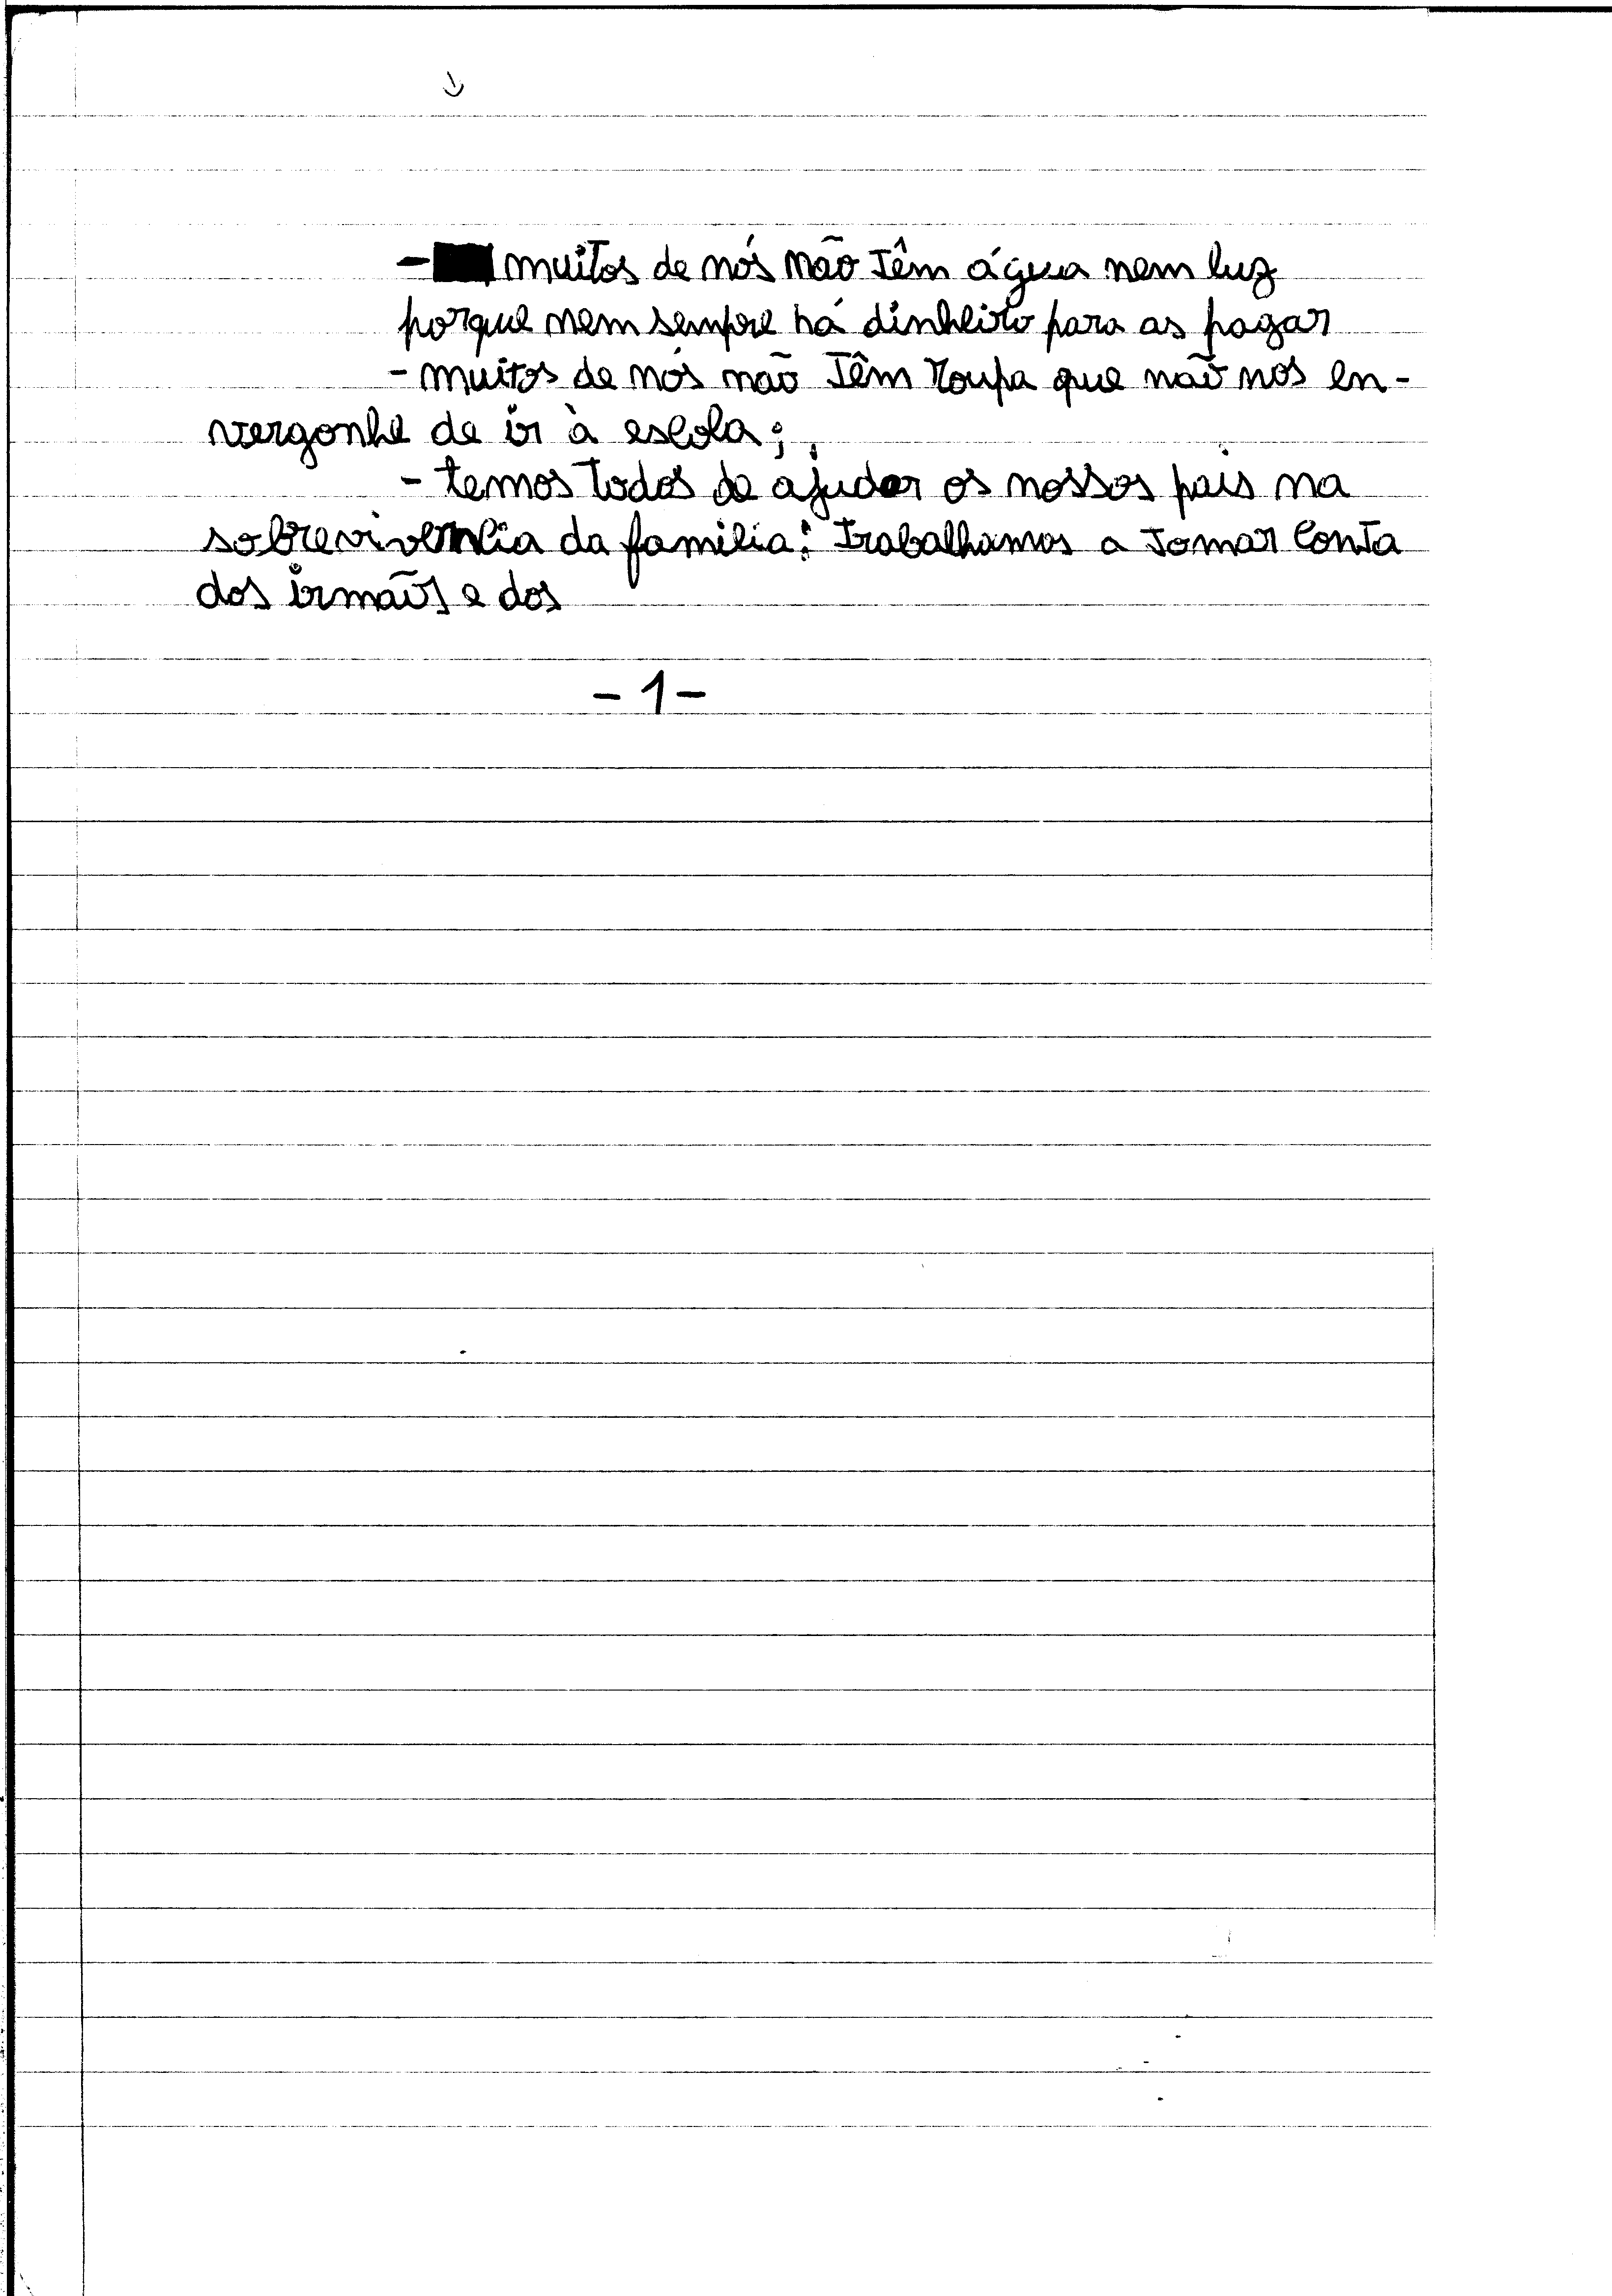 - muitos de nós não têm água nem luz
porque nem sempre há dinheiro para as pagar
- muitos de nós não têm roupa que não nos en-
vergonhe de ir à escola;
- temos todos de ajudar os nossos pais na
sobrevivencia da familia: trabalhamos a tomar conta
dos irmãos e dos
- 1 -